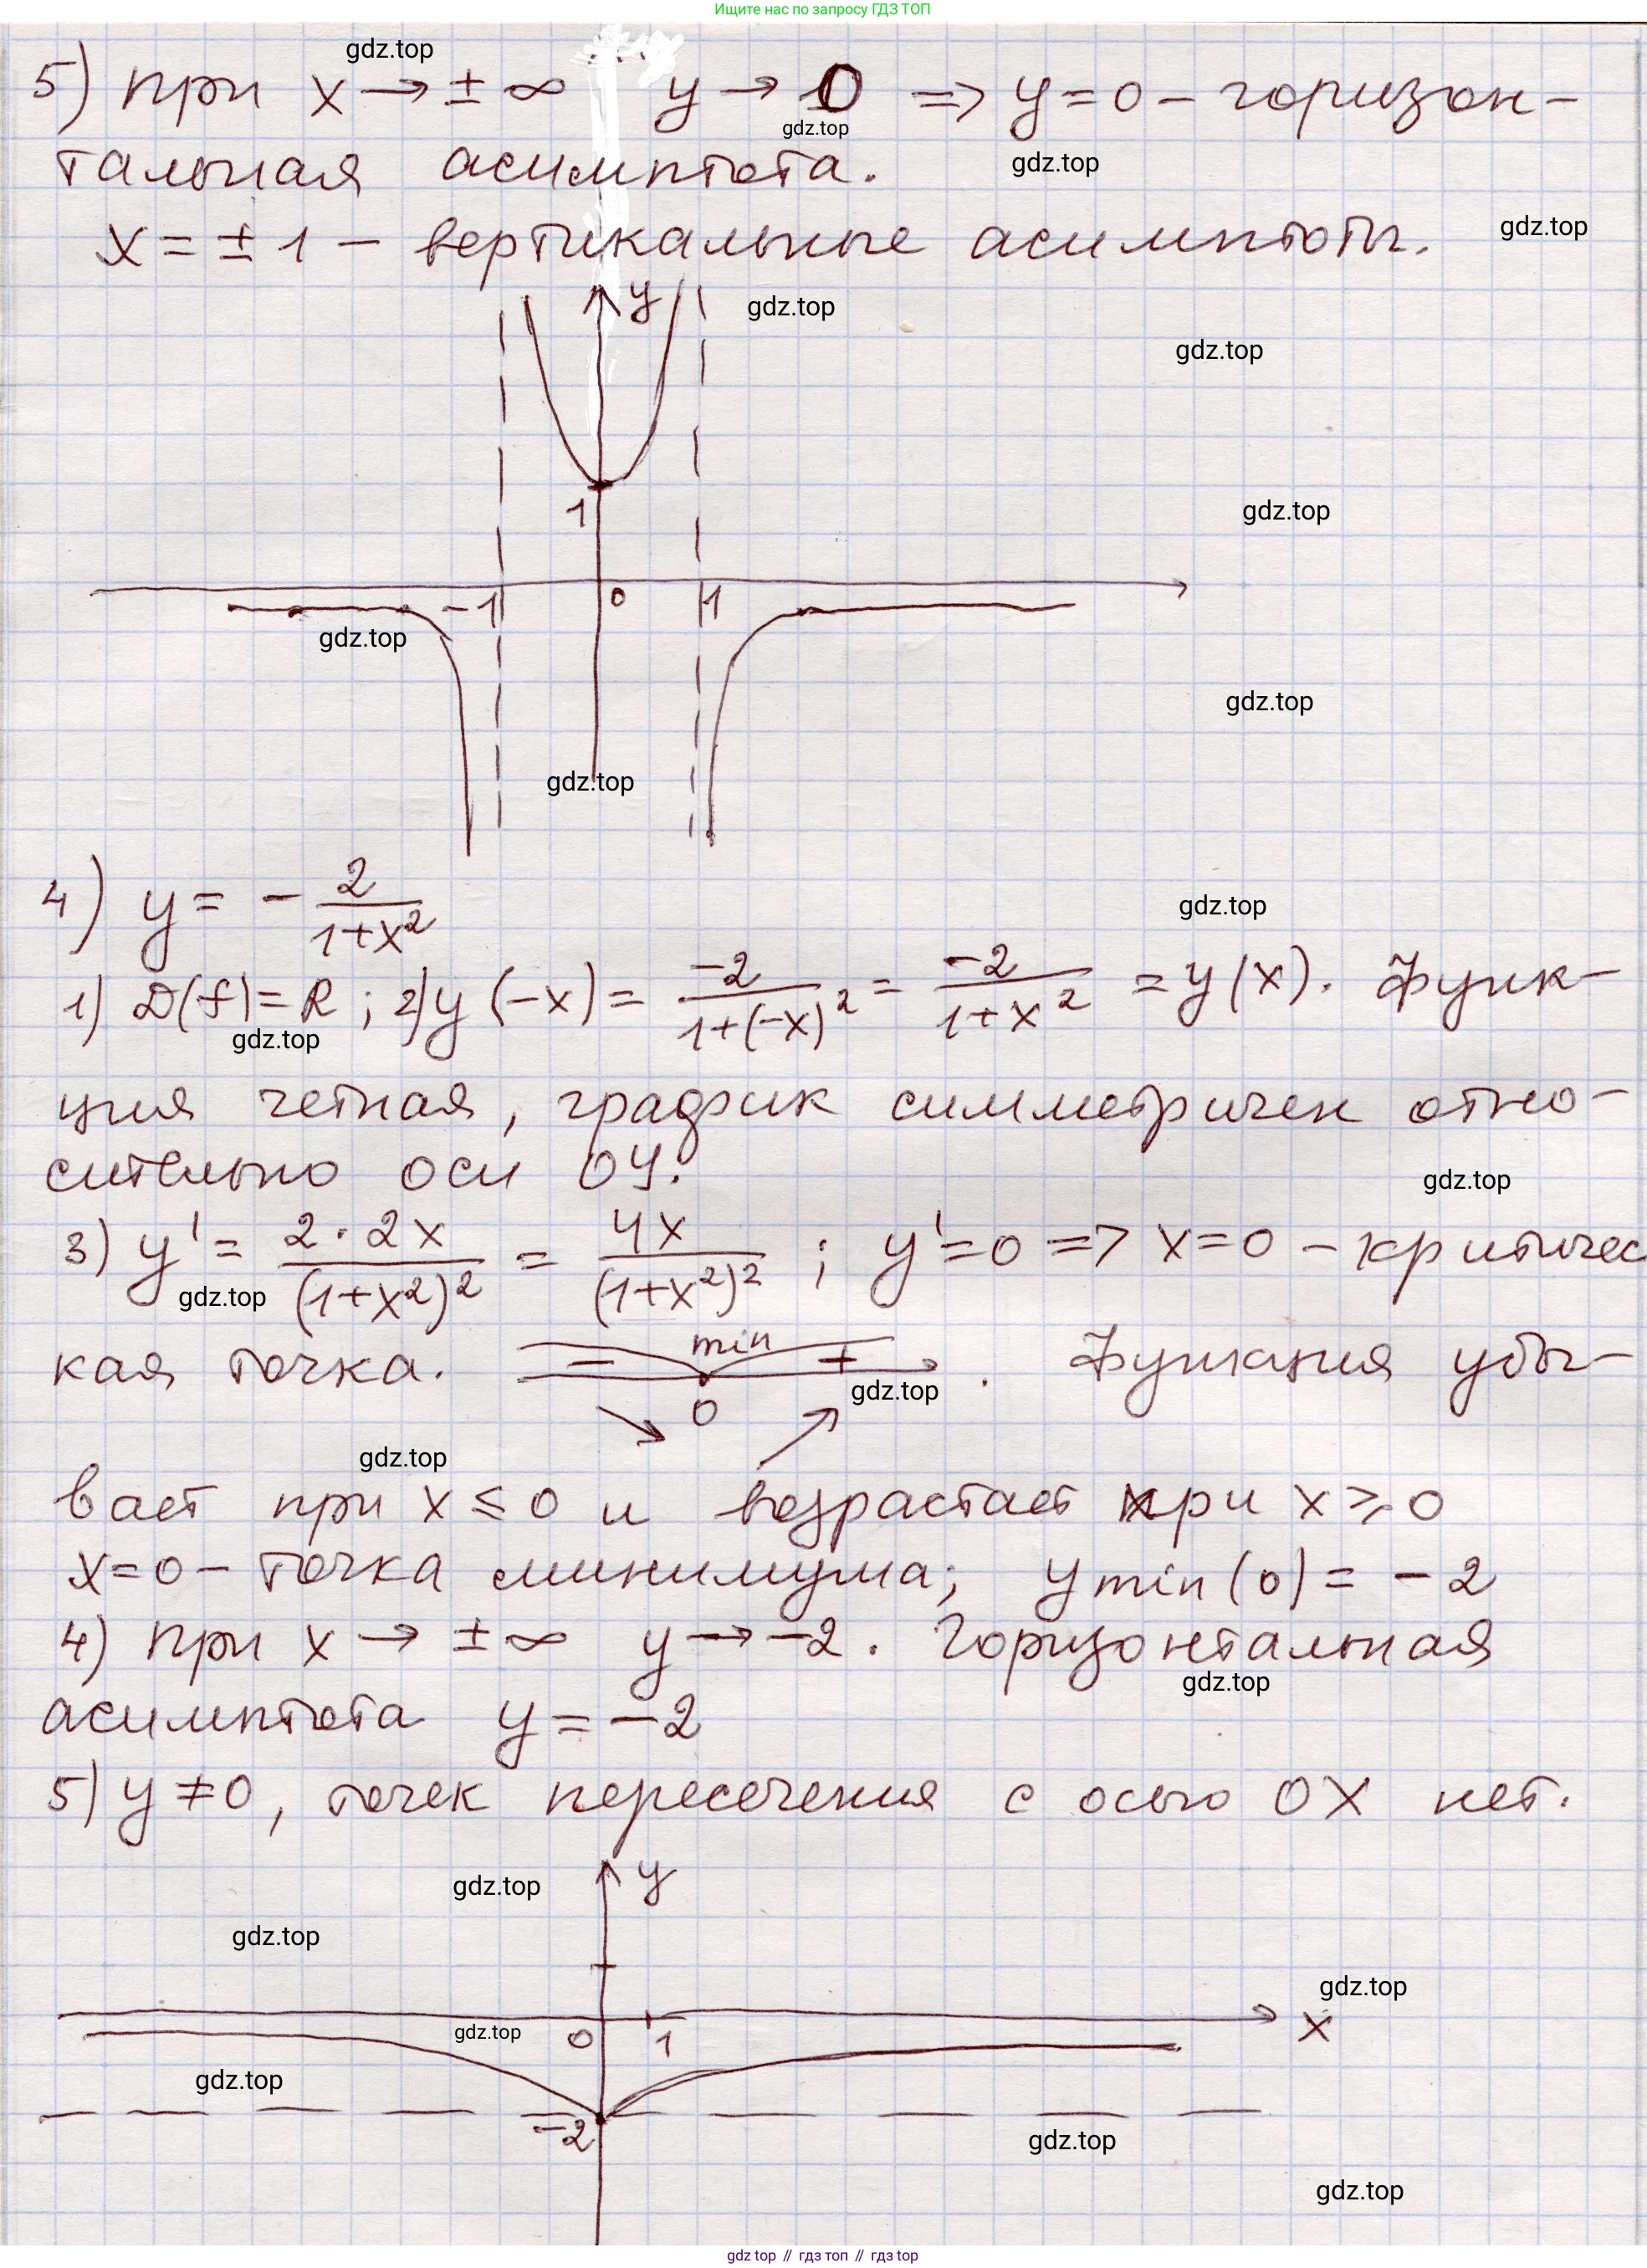 Ищите нас по запросу ГДЗ ТОП
gdz.top
5) При x → ± ∞ y → 0 => y = 0 – горизон-
gdz.top
тальная асимптота.
gdz.top
x = ± 1 – вертикальные асимптоты.
gdz.top
y
gdz.top
gdz.top
1
gdz.top
-1 0 1
gdz.top
gdz.top
gdz.top
4) y = - 2/(1+x²)
gdz.top
1) D(f) = R ; 2) y(-x) = -2/(1+(-x)²) = -2/(1+x²) = y(x). Функ-
gdz.top
ция четная, график симметричен отно-
сительно оси ОУ.
gdz.top
3) y' = 2·2x/(1+x²)² = 4x/(1+x²)² ; y' = 0 => x = 0 – критичес
gdz.top
кая точка. – min + . Функция убы-
gdz.top
0
gdz.top
вает при x ≤ 0 и возрастает при x ≥ 0
x = 0 – точка минимума; y min (0) = - 2
4) При x → ± ∞ y → -2. Горизонтальная
gdz.top
асимптота y = -2
5) y ≠ 0, точек пересечения с осью ОХ нет.
gdz.top
y
gdz.top
gdz.top
0 1 x
gdz.top
gdz.top
-2
gdz.top
gdz.top
gdz top // гдз топ // gdz top